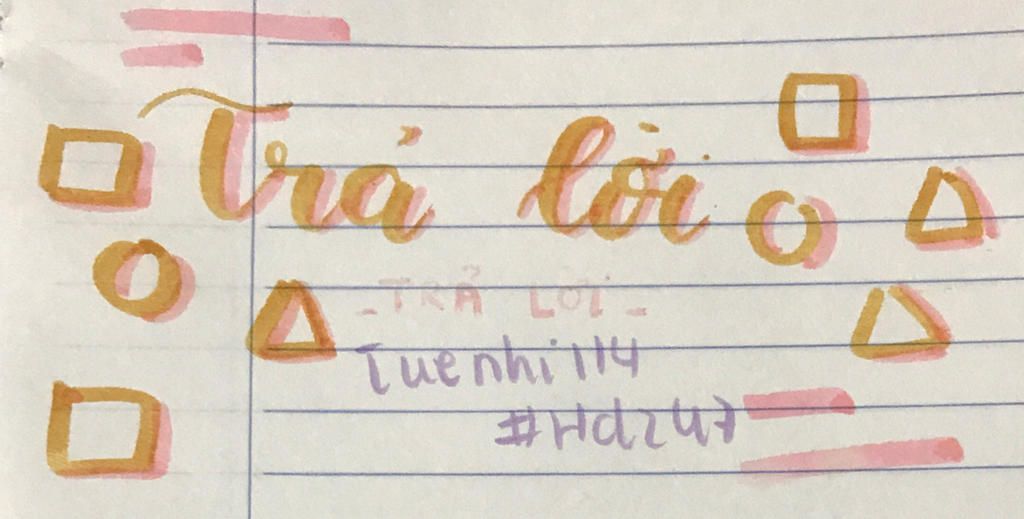 Trả lời
- TRẢ LỜI -
Tuenhi114
#Hd247